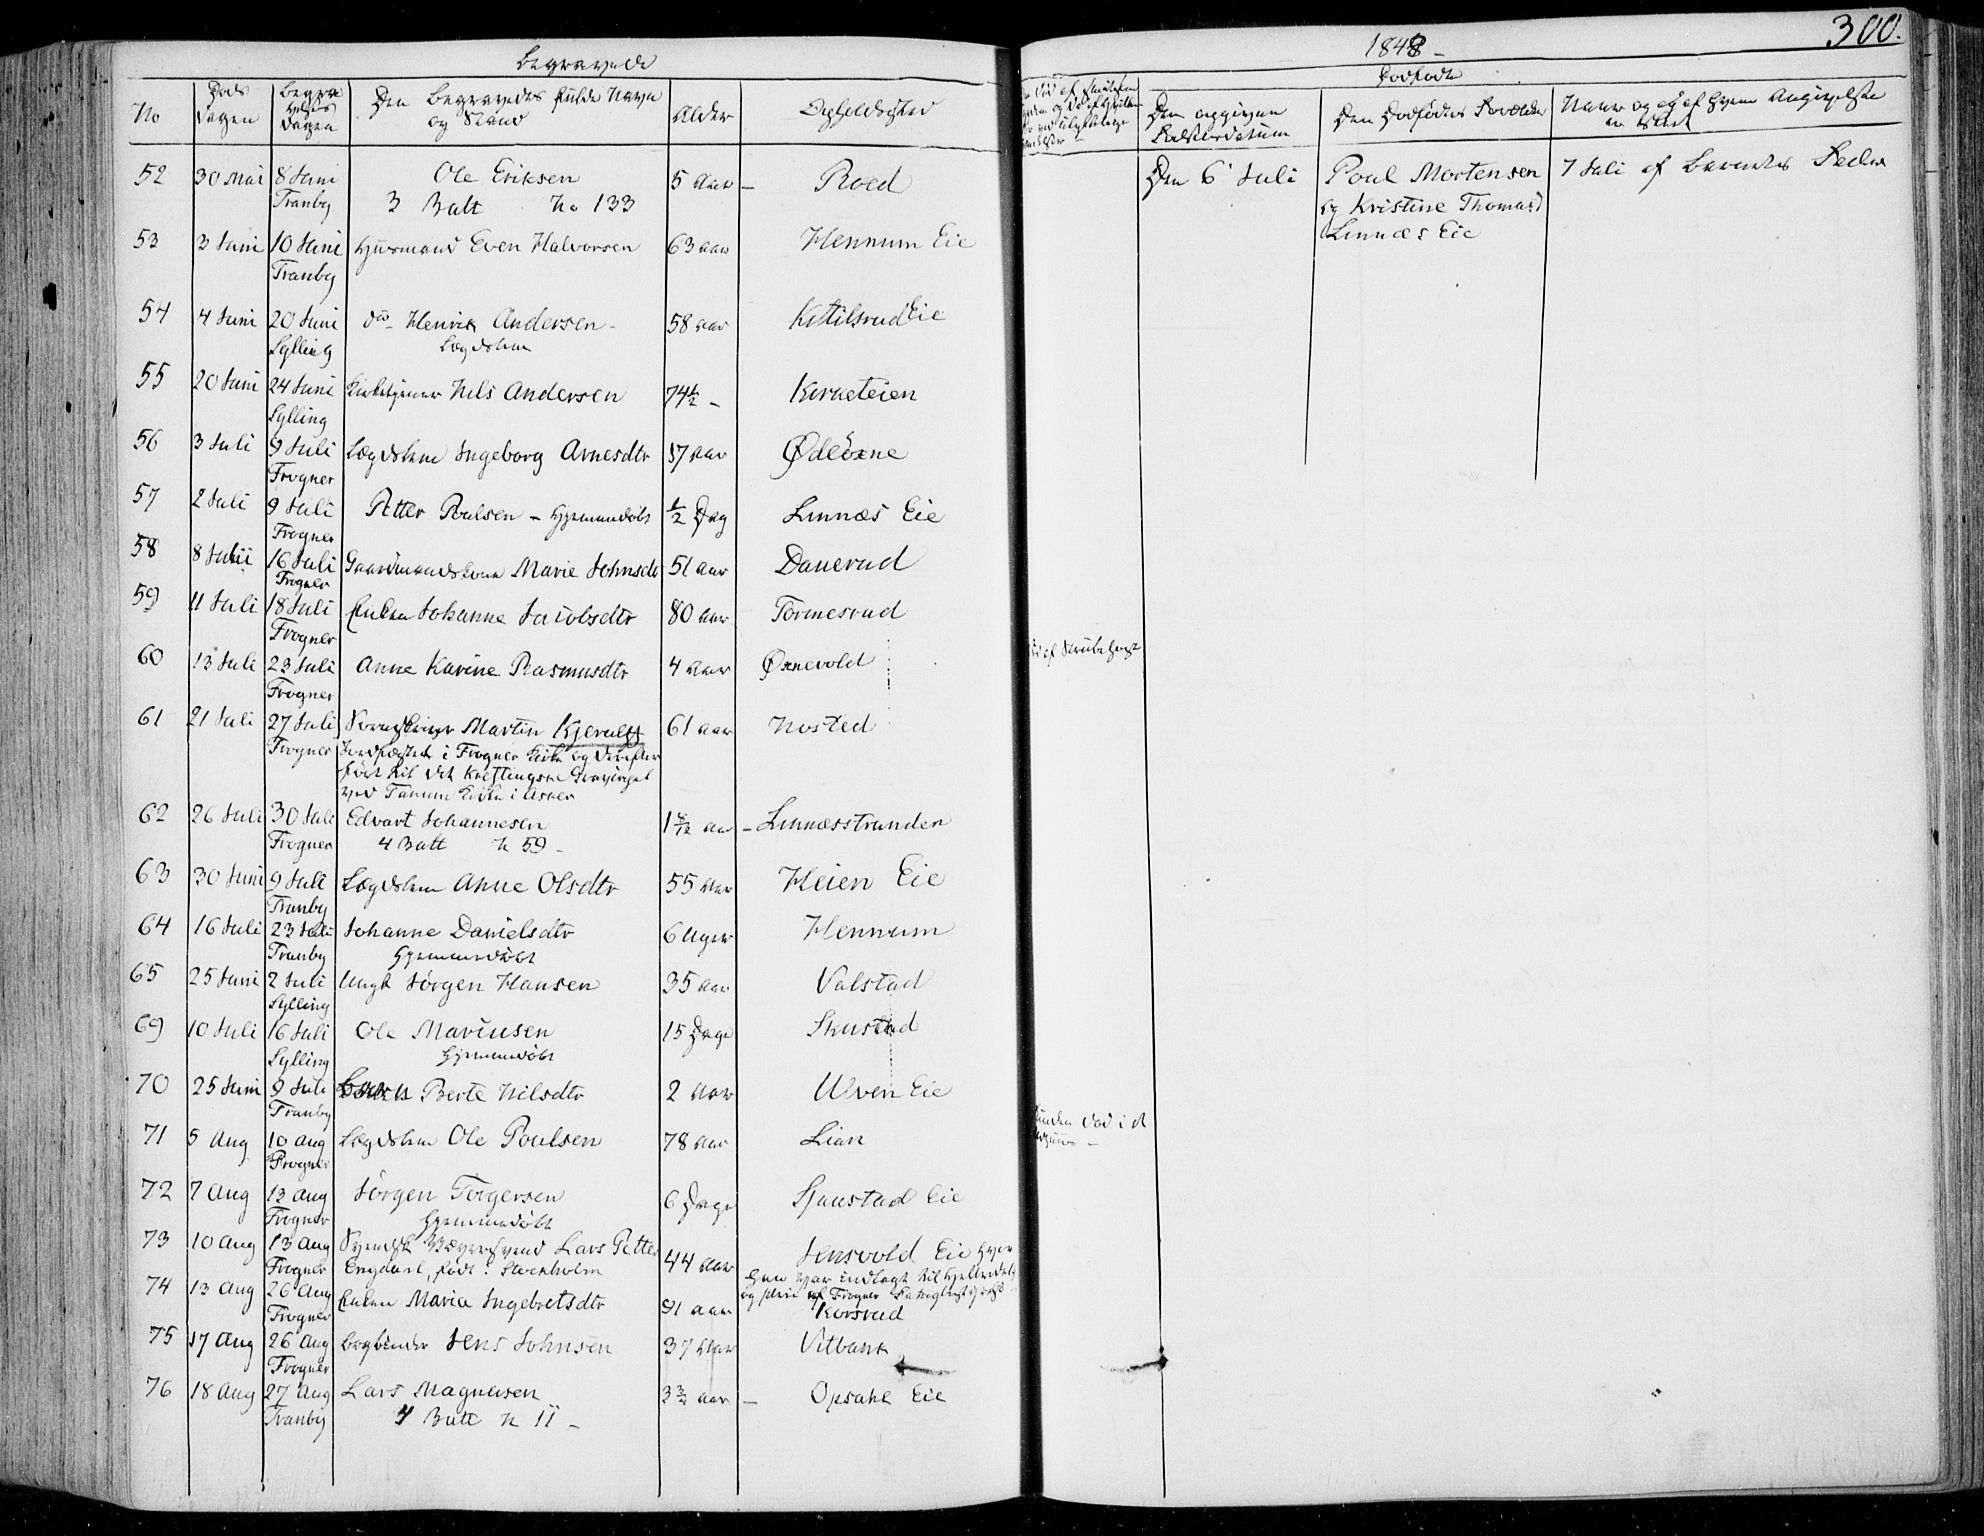 Begravede
No
Døds Dagen
Begravelses Dagen
Den Begravedes fulde Navn og Stand
Alder
Opholdssted
52 30 Mai 8 Juni Ole Eriksen 5 Aar - Roed
Tranby 3 Batt No 133
53 3 Juni 10 Juni Huusmand Even Halvorsen 63 Aar Hennum Eie
Tranby
54 4 Juni 20 Juni do- Henrik Andersen - 58 Aar Kittilsrud Eie
Sylling Lægdslem
55 20 Juni 24 Juni Kirketjener Nils Andersen 74½ - Kirketeien
Sylling
56 3 Juli 9 Juli Lægdslem Ingeborg Arnesdtr 57 Aar
Frogner
57 2 Juli 9 Juli Petter Poulsen - Hjemmedøbt ½ Dag Linnæs Eie
Frogner
58 8 Juli 16 Juli Gaardmandskone Marie Johnsdtr 51 Aar Danerud
Frogner
59 11 Juli 18 Juli Enken Johanne Jacobsdtr 80 Aar Tormesrud
Frogner
60 13 Juli 23 Juli Anne Karine Rasmusdtr 4 Aar Øxnevold
Frogner
61 21 Juli 27 Juli Sorenskriver Martin Kjerulff 61 Aar Nosted
Frogner Jordfæstet i Frogner Kirke og derefter
ført til det Gravsted
ved Tanum Kirke i Asker
62 26 Juli 30 Juli Edvart Johannesen 1 8/12 Aar - Linnæsstranden
Frogner 4 Batt N 59 -
63 30 Juni 9 Juli Lægdslem Anne Olsdtr 55 Aar Heien Eie
Tranby
64 16 Juli 23 Juli Johanne Danielsdtr 6 Uger Hennum
Tranby Hjemmedøbt
65 25 Juni 2 Juli Ungk Jørgen Hansen 35 Aar Valstad
Sylling
69 10 Juli 16 Juli Ole Mariusen 15 Dage Skustad
Sylling Hjemmedøbt
70 25 Juni 9 Juli Berte Nilsdtr 2 Aar Uven Eie
Tranby
71 5 Aug 10 Aug Lægdslem Ole Poulsen 78 Aar Lian
Frogner
72 7 Aug 13 Aug Jørgen Torgersen 6 Dage Sjaustad Eie
Frogner Hjemmedøbt
73 10 Aug 13 Aug Svensk Lars Petter 44 Aar Jensvold Eie hvor
Frogner Engdahl, født i Stockholm
han var indlagt til
af Frogner
74 13 Aug 26 Aug Enken Maria Ingebretsdtr 91 Aar Korsrud
Frogner
75 17 Aug 26 Aug Bogbinder Jens Johnsen 37 Aar Vitbank
Frogner
76 18 Aug 27 Aug Lars Magnusen 3 Aar - Opsahl Eie
Tranby 4 Batt N 11 -
1848 -
300.
Dødfødte
Den opgivne Fødselsdatum
Den Dødfødtes Forældre
Naar og af hvem Angivelse er skeet
Den 6 Juli Poul Mortensen 7 Juli af Barnets Fader
og Kristine Thomasd
Linnæs Eie
død af Strubehoste
funden død i